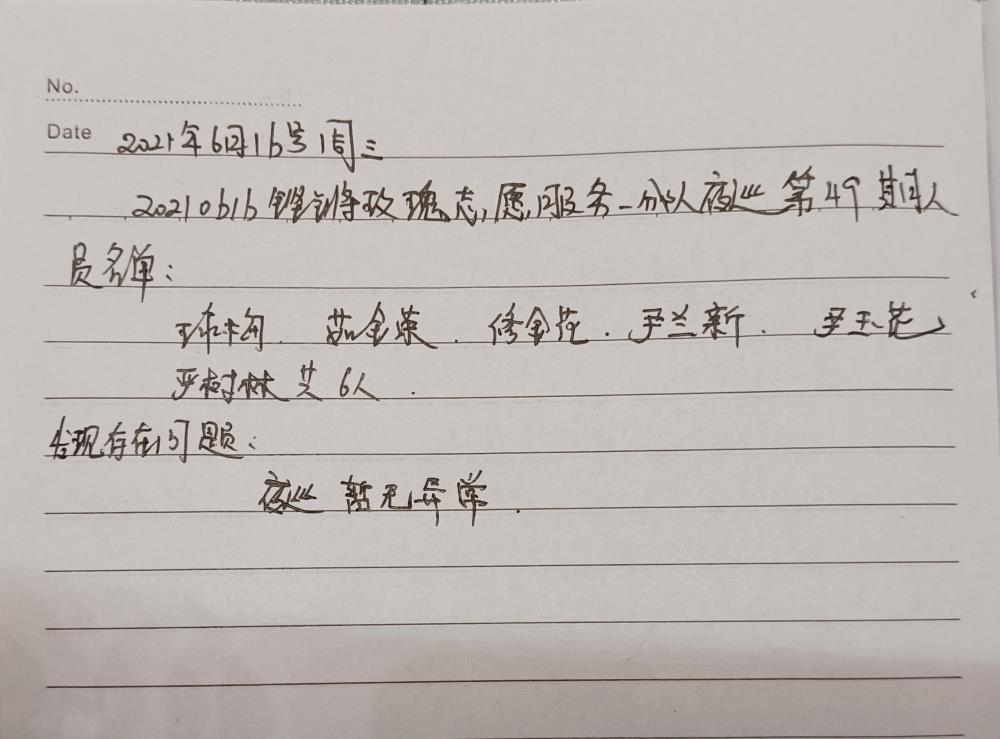 No.
Date 2021年6月16号周三
20210616铿锵玫瑰志愿服务一分队夜巡第49期人
员名单:
茹金荣. 修金花. 尹兰新. 尹玉花
严树林共6人.
发现存在问题:
夜巡暂无异常.